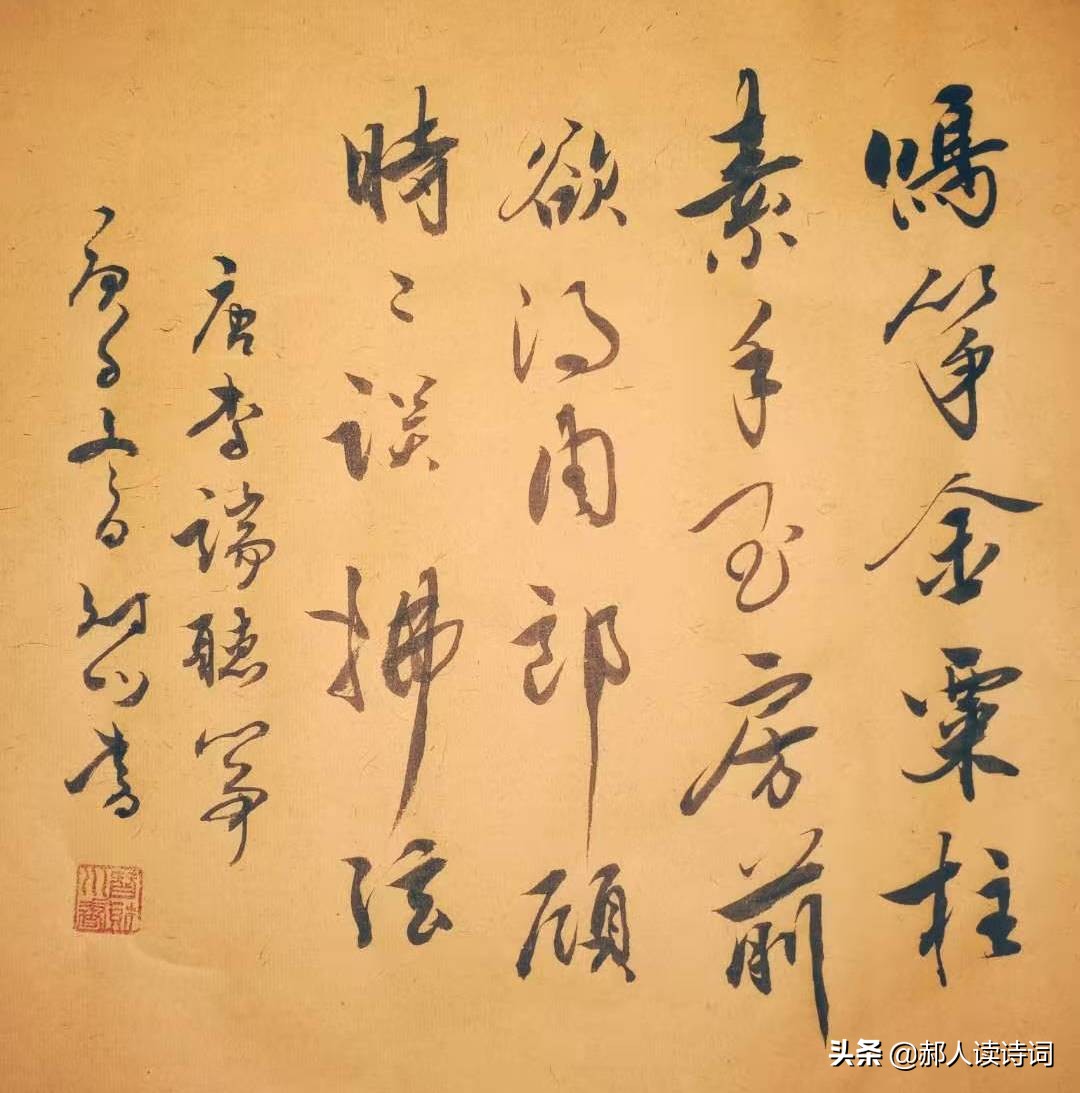 鳴筝金粟柱
素手玉房前
欲得周郎顧
時〻誤拂弦
唐李端聽筝
庚子
書
头条 @郝人读诗词